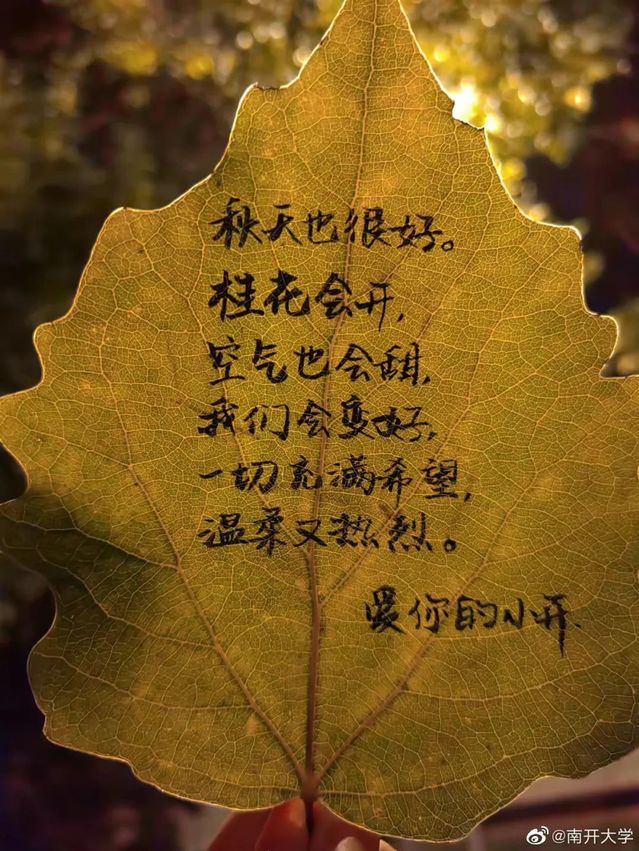 秋天也很好。
桂花会开，
空气也会甜，
我们会变好，
一切充满希望，
温柔又热烈。
爱你的小开.
@南开大学